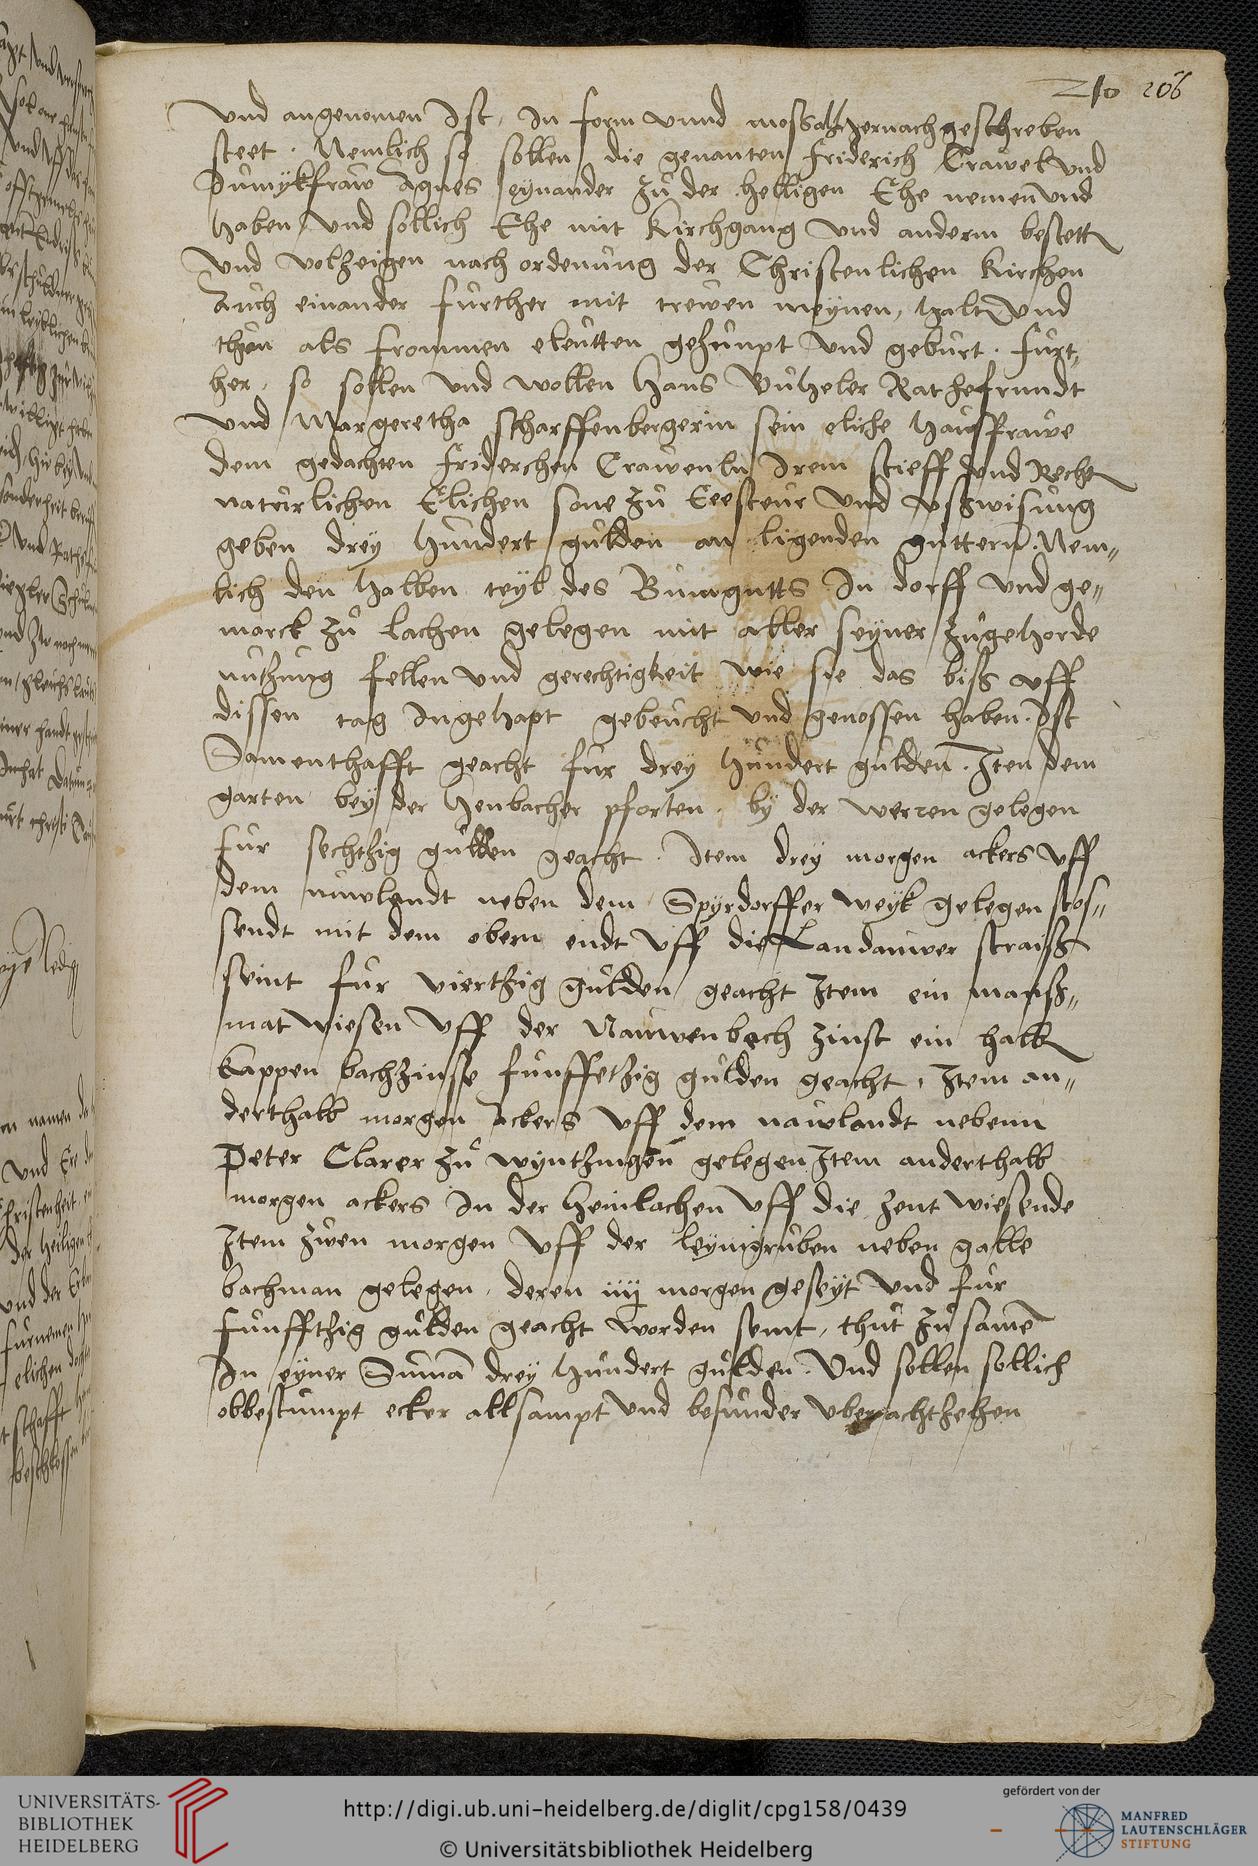 210 206
und angenomen Ist, In form vnnd moss als hernach geschreben
steet. Nemlich so sollen die genanten Friderich Crawel und
Junnckfraw Agnes eynander zu der helligen Ehe nemen und
haben und sollich Ehe mit Kirchgang und anderm bestett
Und volzeigen nach ordenung der Christenlichen Kirchen
Auch einander further mit trewen meynen, halt und
thon als frommen eleutten gezimpt und geburt. Furt„
her, so sollen und wollen Hans Buheler Rathefrundt
und Margeretha scharffenbergerin sein eliche hausfrawe
dem gedachten Friderchen Crawenln Irem stieff und Rech
naturlichen Elichen sone zu Eeesteur und usswisung
geben drey hundert gulden an ligenden guttern. Nem„
lich den halben teyl des Buwgutts In dorff und ge„
marck zu Lachen gelegen mit aller seyner zugehorde
nutzung fellen und gerechtigkeit wie sie das biss uff
dissen tag Ingehapt gebrucht und genossen haben. Ist
Samenthafft geacht fur drey hundert gulden. Item dem
garten bey der Henbacher pforten, by der werren gelegen
fur sechtzig gulden geacht. Item drey morgen ackers uff
dem nuwlandt neben dem Spyrdorffer weyk gelegen stos„
sendt mit dem obern endt uff die Landauwer straiss
seint fur viertzig gulden geacht Item ein manss„
mat wiesen uff der Nauwenbach zinst ein halb
kappen bachzinsse funffetzig gulden geacht, Item an„
derthalb morgen ackers uff dem nauwlandt nebenn
Peter Clarer zu wyntzingen gelegen Item anderthalb
morgen ackers In der heinlachen uff die zent wiesende
Item zwen morgen uff der leymgruben neben galle
bachman gelegen, deren iiij morgen geseyt und fur
funfftzig gulden geacht worden seint, thut zusamen
In eyner Suma drey hundert gulden. Und sollen sollich
obbestumpt ecker allsampt und besunder uber achtzehen
UNIVERSITÄTS-
BIBLIOTHEK
HEIDELBERG
http://digi.ub.uni-heidelberg.de/diglit/cpg158/0439
© Universitätsbibliothek Heidelberg
gefördert von der
MANFRED
LAUTENSCHLÄGER
STIFTUNG